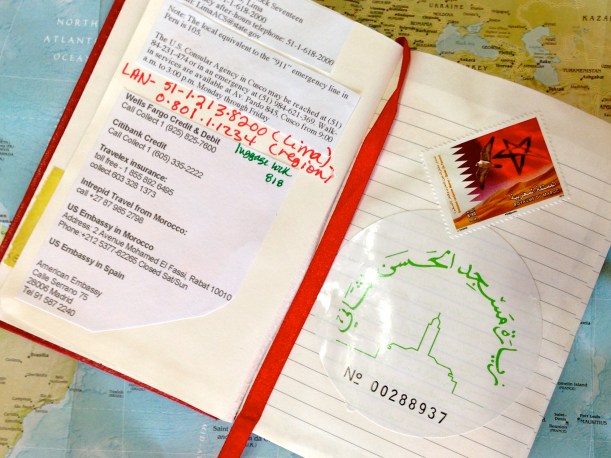 Seventees
after-hours telephone: 51-1-618-2000
LimaACS@state.gov
Note: The local equivalent to the "911" emergency line in
Peru is 105.
The U.S. Consular Agency in Cusco may be reached at (51)
84-231-474 or in an emergency at (51) 984-621-369. Walk-
in services are available at Av. Pardo 845, Cusco from 9:00
a.m. to 3:00 p.m. Monday through Friday
LAN- 51-1-213-8200 (Lima),
0.801.1.1234 (region)
luggage lock
818
Wells Fargo Credit & Debit
Call Collect 1 (925) 825-7600
Citibank Credit
Call Collect 1 (605) 335-2222
Travelex insurance:
toll free - 1 855 892 6495
collect 603 328 1373
Intrepid Travel from Morocco:
call +27 87 985 2798
US Embassy in Morocco
Address: 2 Avenue Mohamed El Fassi, Rabat 10010
Phone: +212 5377-62265 Closed Sat/Sun
US Embassy in Spain
American Embassy
Calle Serrano 75
28006 Madrid
Tel 91 587 2240
زيارة مسجد الحسن الثاني
Nº 00288937
NORTH
ATLANTIC
OCEAN
UKRAINE
MAURITIUS